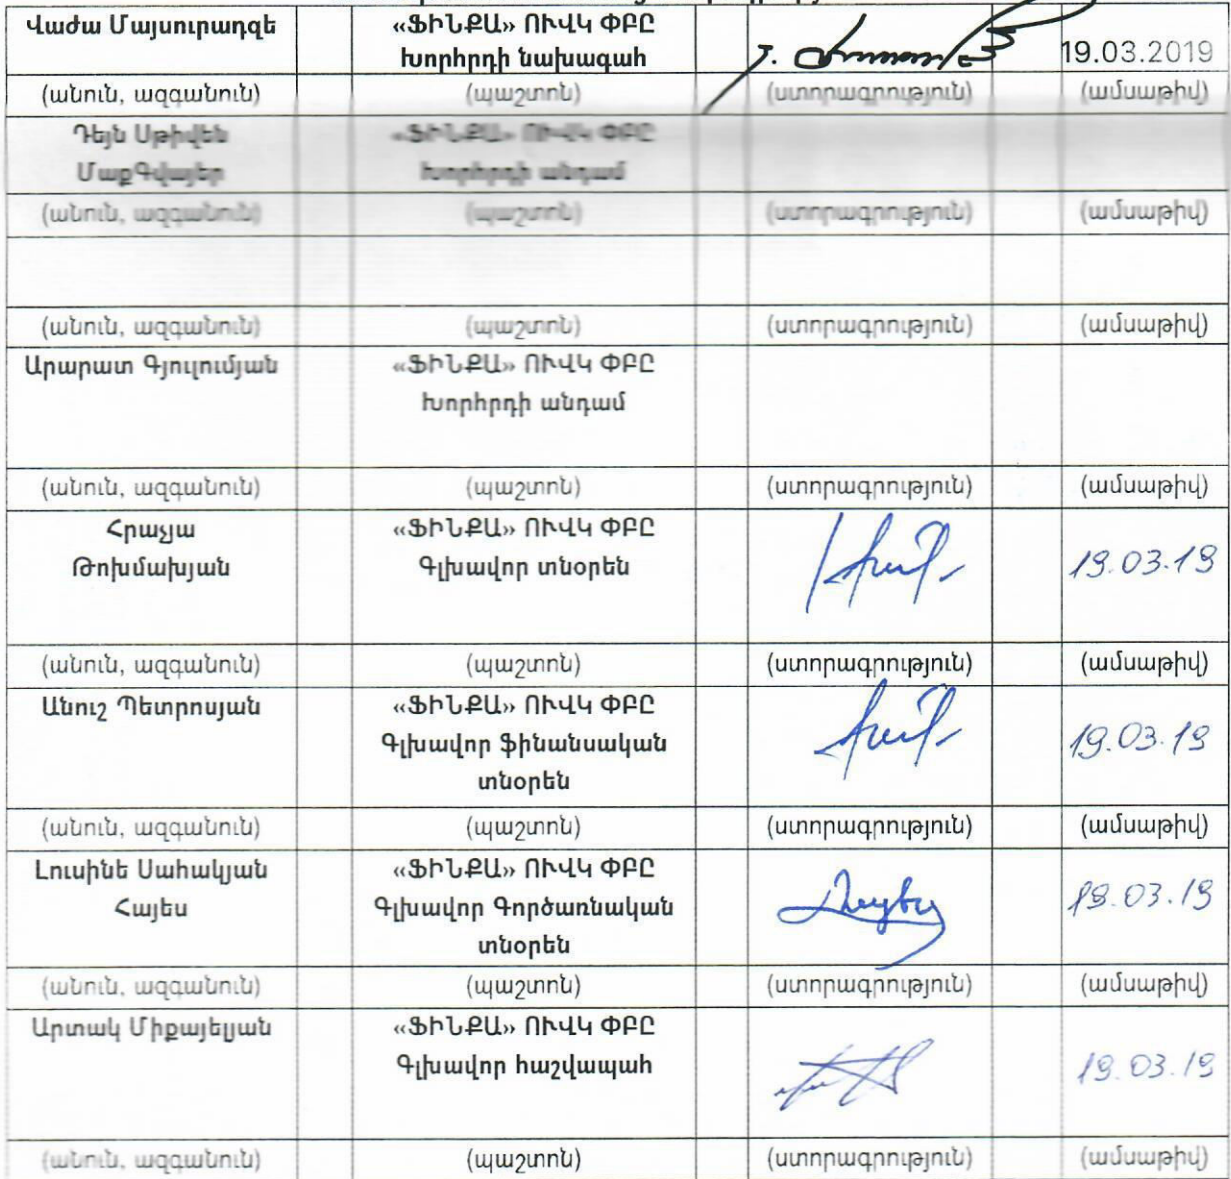 Վաժա Մայսուրաձզե «ՖԻՆՔԱ» ՈՒՎԿ ՓԲԸ
Խորհրդի նախագահ 19.03.2019
(անուն, ազգանուն) (պաշտոն) (ստորագրություն) (ամսաթիվ)
Դեյն Սթիվեն «ՖԻՆՔԱ» ՈՒՎԿ ՓԲԸ
ՄաքԳվայեր Խորհրդի անդամ
(անուն, ազգանուն) (պաշտոն) (ստորագրություն) (ամսաթիվ)
(անուն, ազգանուն) (պաշտոն) (ստորագրություն) (ամսաթիվ)
Արարատ Գյուլումյան «ՖԻՆՔԱ» ՈՒՎԿ ՓԲԸ
Խորհրդի անդամ
(անուն, ազգանուն) (պաշտոն) (ստորագրություն) (ամսաթիվ)
Հրաչյա «ՖԻՆՔԱ» ՈՒՎԿ ՓԲԸ
Թոխմախյան Գլխավոր տնօրեն 19.03.19
(անուն, ազգանուն) (պաշտոն) (ստորագրություն) (ամսաթիվ)
Անուշ Պետրոսյան «ՖԻՆՔԱ» ՈՒՎԿ ՓԲԸ
Գլխավոր ֆինանսական 19.03.19
տնօրեն
(անուն, ազգանուն) (պաշտոն) (ստորագրություն) (ամսաթիվ)
Լուսինե Սահակյան «ՖԻՆՔԱ» ՈՒՎԿ ՓԲԸ
Հայես Գլխավոր Գործառնական 19.03.19
տնօրեն
(անուն, ազգանուն) (պաշտոն) (ստորագրություն) (ամսաթիվ)
Արտակ Միքայելյան «ՖԻՆՔԱ» ՈՒՎԿ ՓԲԸ
Գլխավոր հաշվապահ 19.03.19
(անուն, ազգանուն) (պաշտոն) (ստորագրություն) (ամսաթիվ)